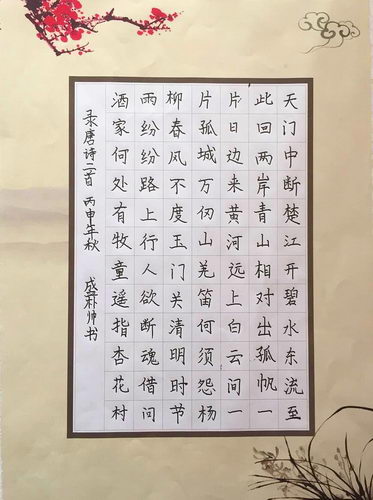 天门中断楚江开碧水东流至
此回两岸青山相对出孤帆一
片日边来黄河远上白云间一
片孤城万仞山羌笛何须怨杨
柳春风不度玉门关清明时节
雨纷纷路上行人欲断魂借问
酒家何处有牧童遥指杏花村
录唐诗三首 丙申年秋 帅书